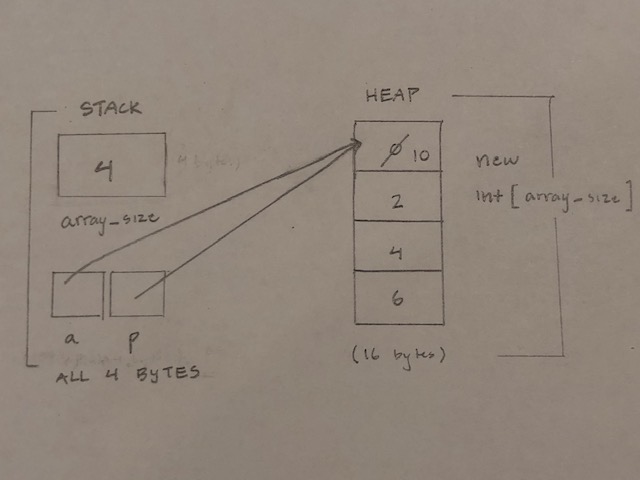 STACK
4
array_size
a p
ALL 4 BYTES
HEAP
0 10
2
4
6
(16 bytes)
new
int [array_size]